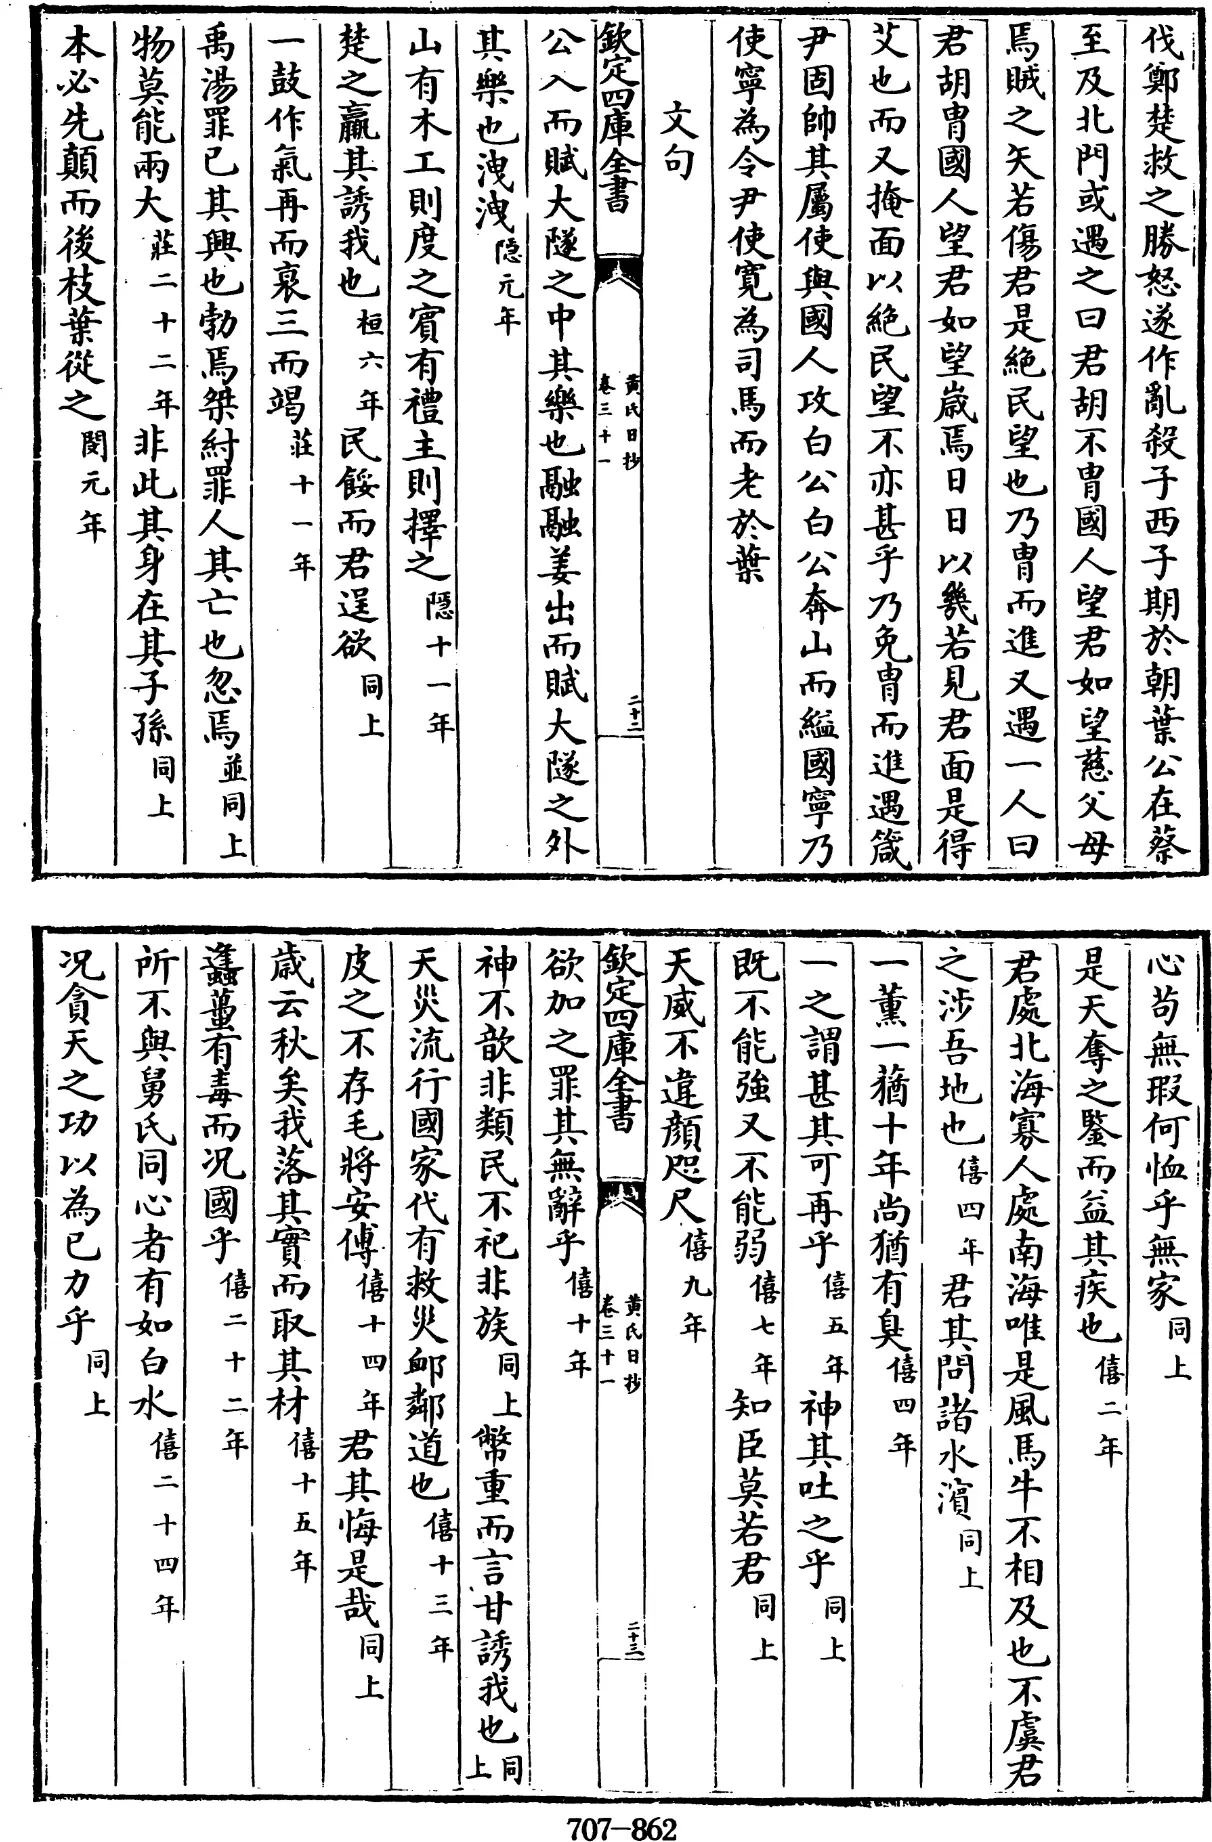 伐鄭楚救之勝怒遂作亂殺子西子期於朝葉公在蔡
至及北門或遇之曰君胡不胄國人望君如望慈父母
焉賊之矢若傷君是絶民望也乃胄而進又遇一人曰
君胡胄國人望君如望歲焉日日以幾若見君面是得
艾也而又掩面以絶民望不亦甚乎乃免胄而進遇箴
尹固帥其屬使與國人攻白公白公奔山而縊國寧乃
使寧為令尹使寛為司馬而老於葉
文句
欽定四庫全書
黄氏日抄
卷三十一
二十二
公入而賦大隧之中其樂也融融姜出而賦大隧之外
其樂也洩洩隱元年
山有木工則度之賓有禮主則擇之隱十一年
楚之羸其誘我也桓六年民餒而君逞欲同上
一鼓作氣再而衰三而竭莊十一年
禹湯罪已其興也勃焉桀紂罪人其亡也忽焉並同上
物莫能兩大莊二十二年非此其身在其子孫同上
本必先顛而後枝葉從之閔元年
心苟無瑕何恤乎無家同上
是天奪之鑒而益其疾也僖二年
君處北海寡人處南海唯是風馬牛不相及也不虞君
之涉吾地也僖四年君其問諸水濱同上
一薰一蕕十年尚猶有臭僖四年
一之謂甚其可再乎僖五年神其吐之乎同上
既不能強又不能弱僖七年知臣莫若君同上
天威不違顔咫尺僖九年
欽定四庫全書
黄氏日抄
卷三十一
二十三
欲加之罪其無辭乎僖十年
神不歆非類民不祀非族同上幣重而言甘誘我也同上
天災流行國家代有救災䘏鄰道也僖十三年
皮之不存毛將安傅僖十四年君其悔是哉同上
歳云秋矣我落其實而取其材僖十五年
蠭蠆有毒而况國乎僖二十二年
所不與舅氏同心者有如白水僖二十四年
况貪天之功以為已力乎同上
707—862